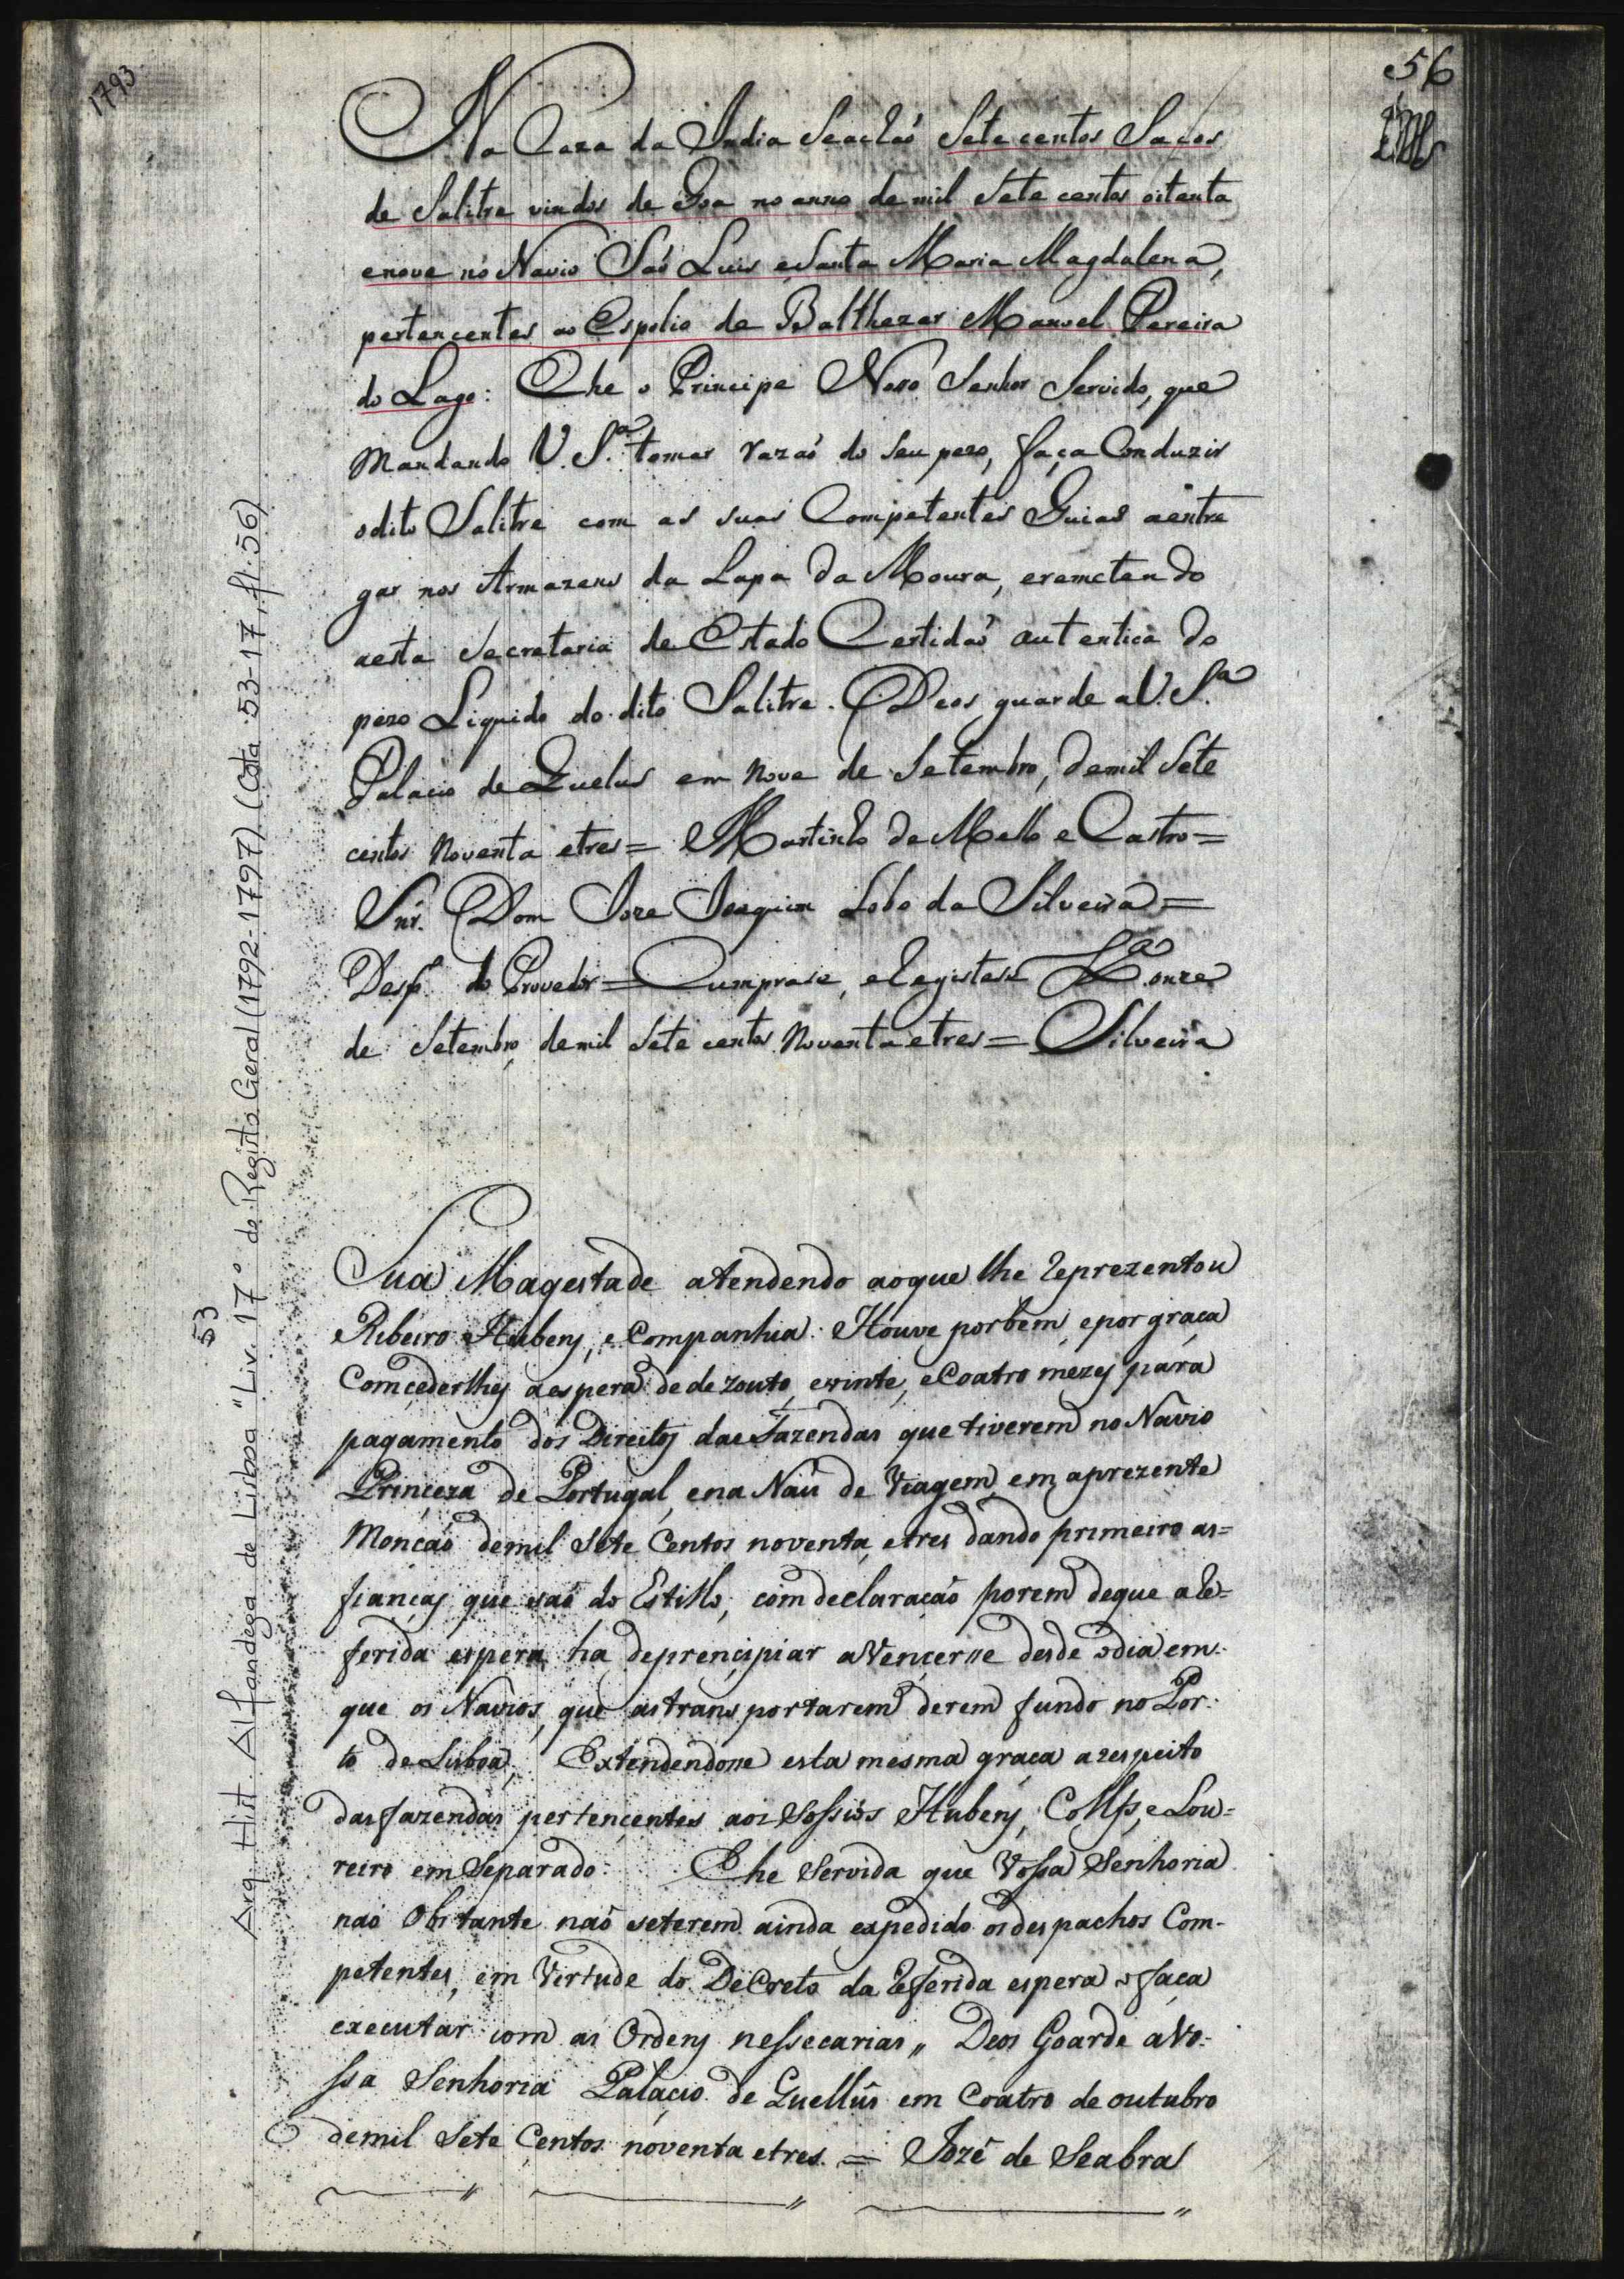 1793
56
Na Caza da India Seachaõ Sete centos Sacos
de Salitre vindos de Goa no anno de mil Sete centos oitenta
enove no Navio Saõ Luis eSanta Maria Magdalena,
pertencentes ao Espolio de Balthezar Manoel Pereira
do Lago: E he o Principe Nosso Senhor Servido, que
mandando V. S.ª tomar razaõ do seu pezo, faça Conduzir
odito Salitre com as suas Competentes Guias aentre
gar nos Armazens da Lapa da Moura, eremetendo
aesta Secretaria de Estado Certidaõ autentica do
pezo Liquido do dito Salitre. Deos guarde aV. S.ª
Palacio de Quelus em nove de Setembro, demil Sete
centos noventa etres = Martinho de Mello e Castro =
Snr. Dom Joze Joaquim Lobo da Silveira =
Desp.º do Provedor = Cumprase, eRegistese Lx.ª onze
de Setembro demil Sete centos noventa etres = Silveira
Sua Magestade atendendo aoque lhe Reprezentou
Ribeiro Hubens, e Companhia: Houve porbem, epor graça
Comcederlhes aespera de dezouto, evinte, eCoatro mezes para
pagamento dos Direitos das Fazendas que tiverem no Navio
Princeza de Portugal, ena Náu de Viagem, em aprezente
Monçaõ demil Sete Centos noventa, etres dando primeiro as=
fianças que saõ do Estillo, com declaraçaõ porem deque aRe-
ferida espera ha deprencipiar aVencerse desde odia em
que os Navios, que astransportarem derem fundo no Por-
to deLisboa, Extendendose esta mesma graça arespeito
dasfazendas pertencentes aos Sossios Hubens, , eLou=
reiro em Separado: E he Servida que Vossa Senhoria
naõ Obstante naõ seterem ainda expedido osdespachos Com-
petentes, em Virtude do DeCreto da Referida espera ofaça
executar com as Ordens nessecarias,, Deos Goarde aVo-
ssa Senhoria Palacio de Quellus em Coatro de outubro
demil Sete Centos noventa etres. = Jozé de Seabra
Arq. Hist. Alfandega de Lisboa "Liv. 17º de Registo Geral (1792-1797) (Cota 53-17, fl. 56)
53